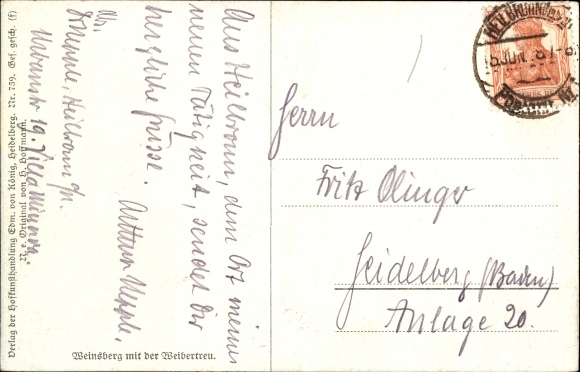 Verlag der Hofkunsthandlung Edm. von König, Heidelberg. Nr. 739. Ges. gesch. (f)
N. e. Original von H. Hoffmann.
Aus Heilbronn, dem Ort meiner
neuen Tätigkeit, sendet Dir
herzliche Grüsse.
Arthur
Abs.
Heilbronn a/N.
Urbanstr 19. Villa Minerva.
Weinsberg mit der Weibertreu.
HEILBRONN
Herrn
Fritz Olinger
Heidelberg (Baden)
Anlage 20.